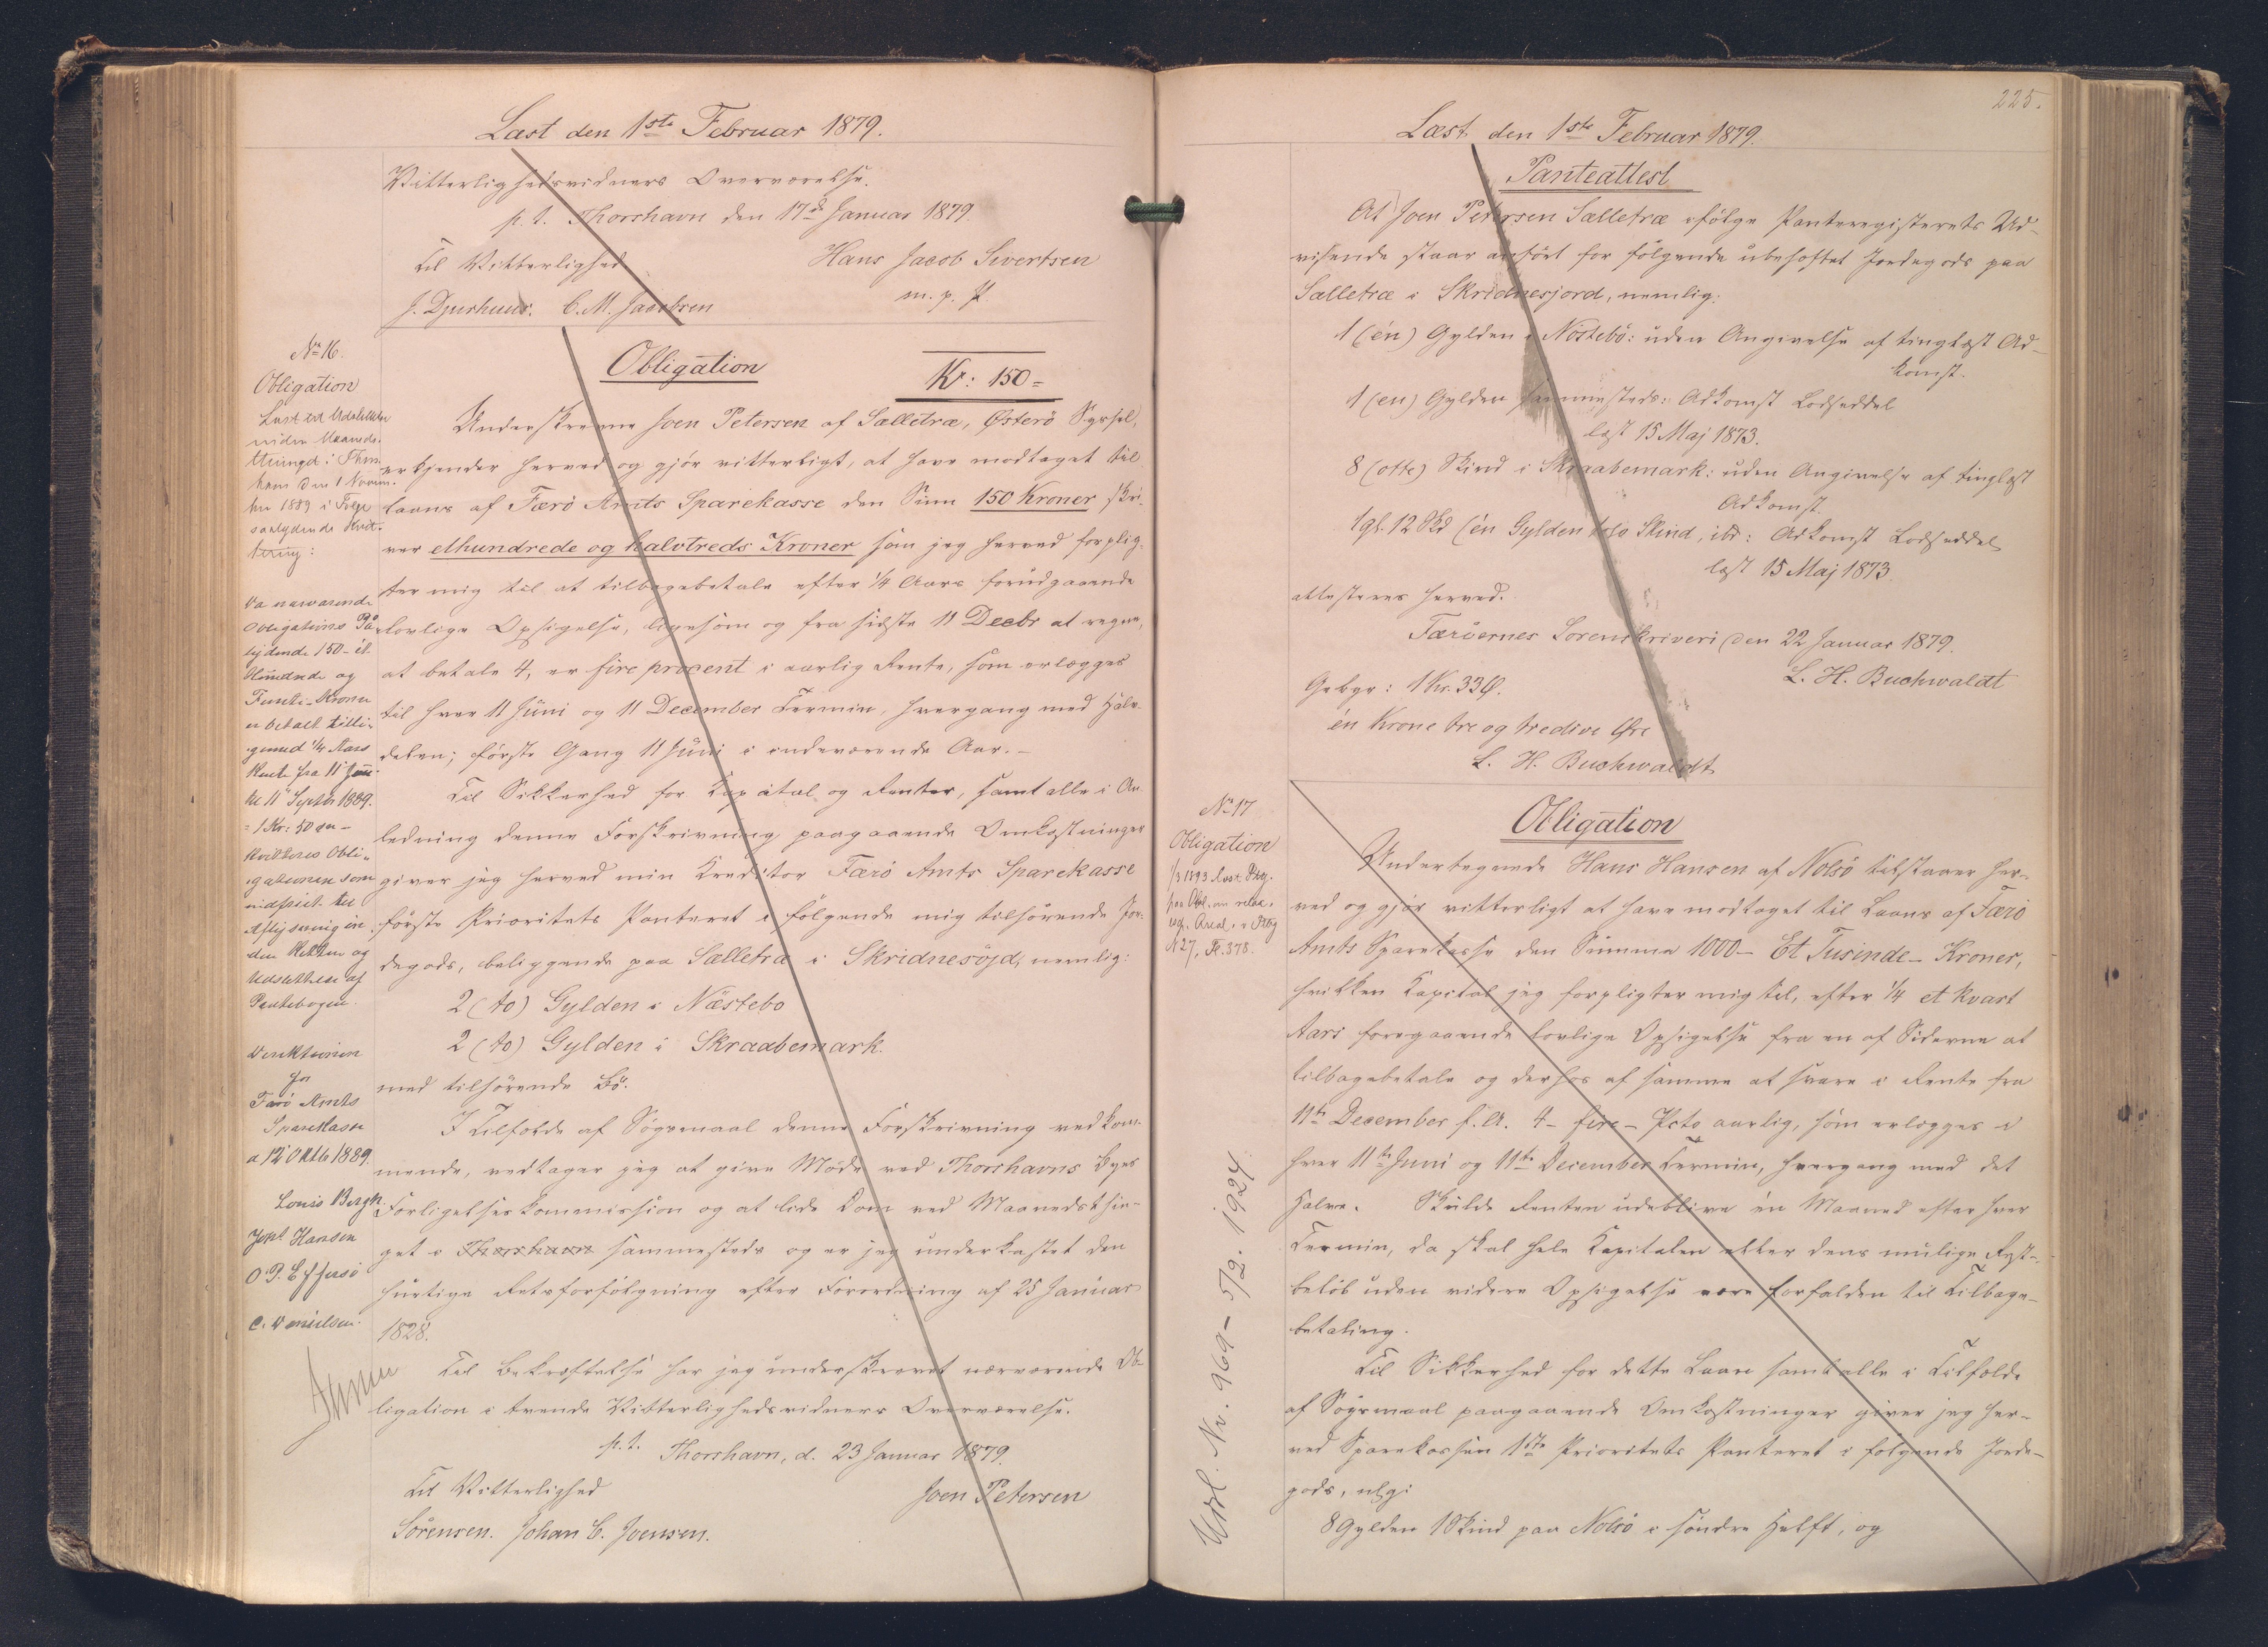 Læst den 1ste Februar 1879.
Vitterlighedsvidners Overværelse.
p. t. Thorshavn den 17de Januar 1879.
Til Vitterlighed
Hans Jacob Sivertsen
J. Djurhuus. C. M. Jacobsen
m. p. P.
No 16.
Obligation
Læst ved
niden Maaneds-
thinget i Thors-
havn den 1 Novem-
ber 1889 i Følge
saalydende Kvit-
tering:
Da nærværende
Obligations Paa-
lydende 150 - et
Hundrede og
Femti - Kroner
er betalt tilli-
gemed 1/4 Aars
Rente fra 11 Juni
til 11 Septbr 1889.
= 1 Kr: 50 Øre -
kvitteres Obli-
gationen som
indfriet til
Aflysning in-
den Retten og
Udslettelse af
Pantebogen.
Direktionen
for
Færö Amts
Sparekasse
d 12 Oktb 1889.
Louis Bergh
Joh. Hansen
O. P. Effersö
C. Danielsen.
Obligation
Kr: 150 =
Underskrevne Joen Petersen af Sælletræ, Österö Syssel,
erkjender herved og gjör vitterligt, at have modtaget til
Laans af Færö Amts Sparekasse den Sum 150 Kroner skri-
ver ethundrede og halvtreds Kroner som jeg herved forplig-
ter mig til at tilbagebetale efter 1/4 Aars forudgaaende
lovlige Opsigelse, ligesom og fra sidste 11 Decbr at regne,
at betale 4, er fire procent i aarlig Rente, som erlægges
til hver 11 Juni og 11 December Termin, hvergang med Halv-
delen; förste Gang 11 Juni i indeværende Aar. -
Til Sikkerhed for Kapital og Renter, samt alle i An-
ledning denne Forskrivning paagaaende Omkostninger
giver jeg herved min Kreditor Færö Amts Sparekasse
förste Prioritets Panteret i fölgende mig tilhörende Jor-
degods, beliggende paa Sælletræ i Skridnesöjd, nemlig:
2 (to) Gylden i Næstebo
2 (to) Gylden i Skraabemark.
med tilhörende Bö.
I Tilfælde af Sögsmaal denne Forskrivning vedkom-
mende, vedtager jeg at give Möde ved Thorshavns Byes
Forligelseskommission og at lide Dom ved Maanedsthin-
get i Thorshavn sammesteds og er jeg underkastet den
hurtige Retsforfölgning efter Forordning af 25 Januar
1828.
Til Bekræftelse har jeg underskrevet nærværende Ob-
ligation i tvende Vitterlighedsvidners Overværelse.
p. t. Thorshavn, d. 23 Januar 1879.
Til Vitterlighed
Joen Petersen
Sörensen. Johan C. Joensen.
225.
Læst den 1ste Februar 1879.
Panteattest
At Joen Petersen Sælletræ ifölge Panteregisterets Ud-
visende staar anfört for fölgende ubehæftet Jordegods paa
Sælletræ i Skridnesjord, nemlig:
1 (én) Gylden i Nöstebö: uden Angivelse af tinglæst Ad-
komst.
1 (en) Gylden sammesteds: Adkomst Lodseddel
læst 15 Maj 1873.
8 (otte) Skind i Skraabemark: uden Angivelse af tinglæst
Adkomst.
1 gl. 12 Skd (én Gylden tolv Skind, ibd: Adkomst Lodseddel
læst 15 Maj 1873
attesteres herved.
Færöernes Sorenskriveri den 22 Januar 1879.
L. H. Buchwaldt
Gebyr: 1 Kr. 33 Ø.
én Krone tre og tredive Øre
L. H. Buchwaldt
No 17
Obligation
N 27, Fol. 378.
Nr. 969 - 5/2. 1924
Obligation
Undertegnede Hans Hansen af Nolsö tilstaaer her-
ved og gjör vitterligt at have modtaget til Laans af Færö
Amts Sparekasse den Summa 1000 - Et Tusinde - Kroner,
hvilken Kapital jeg forpligter mig til, efter 1/4 et kvart
Aars foregaaende lovlige Opsigelse fra en af Siderne at
tilbagebetale og derhos af samme at svare i Rente fra
11te December f. A. 4 - fire - Pcto aarlig, som erlægges i
hver 11te Juni og 11te December Termin, hvergang med det
Halve. Skulde Renten udeblive én Maaned efter hver
Termin, da skal hele Kapitalen eller dens mulige Rest-
belöb uden videre Opsigelse være forfalden til Tilbage-
betaling.
Til Sikkerhed for dette Laan samt alle i Tilfælde
af Sögsmaal paagaaende Omkostninger giver jeg her-
ved Sparekassen 1ste Prioritets Panteret i fölgende Jorde-
gods, nlg:
8 Gylden 1 Skind paa Nolsö i söndre Helft, og